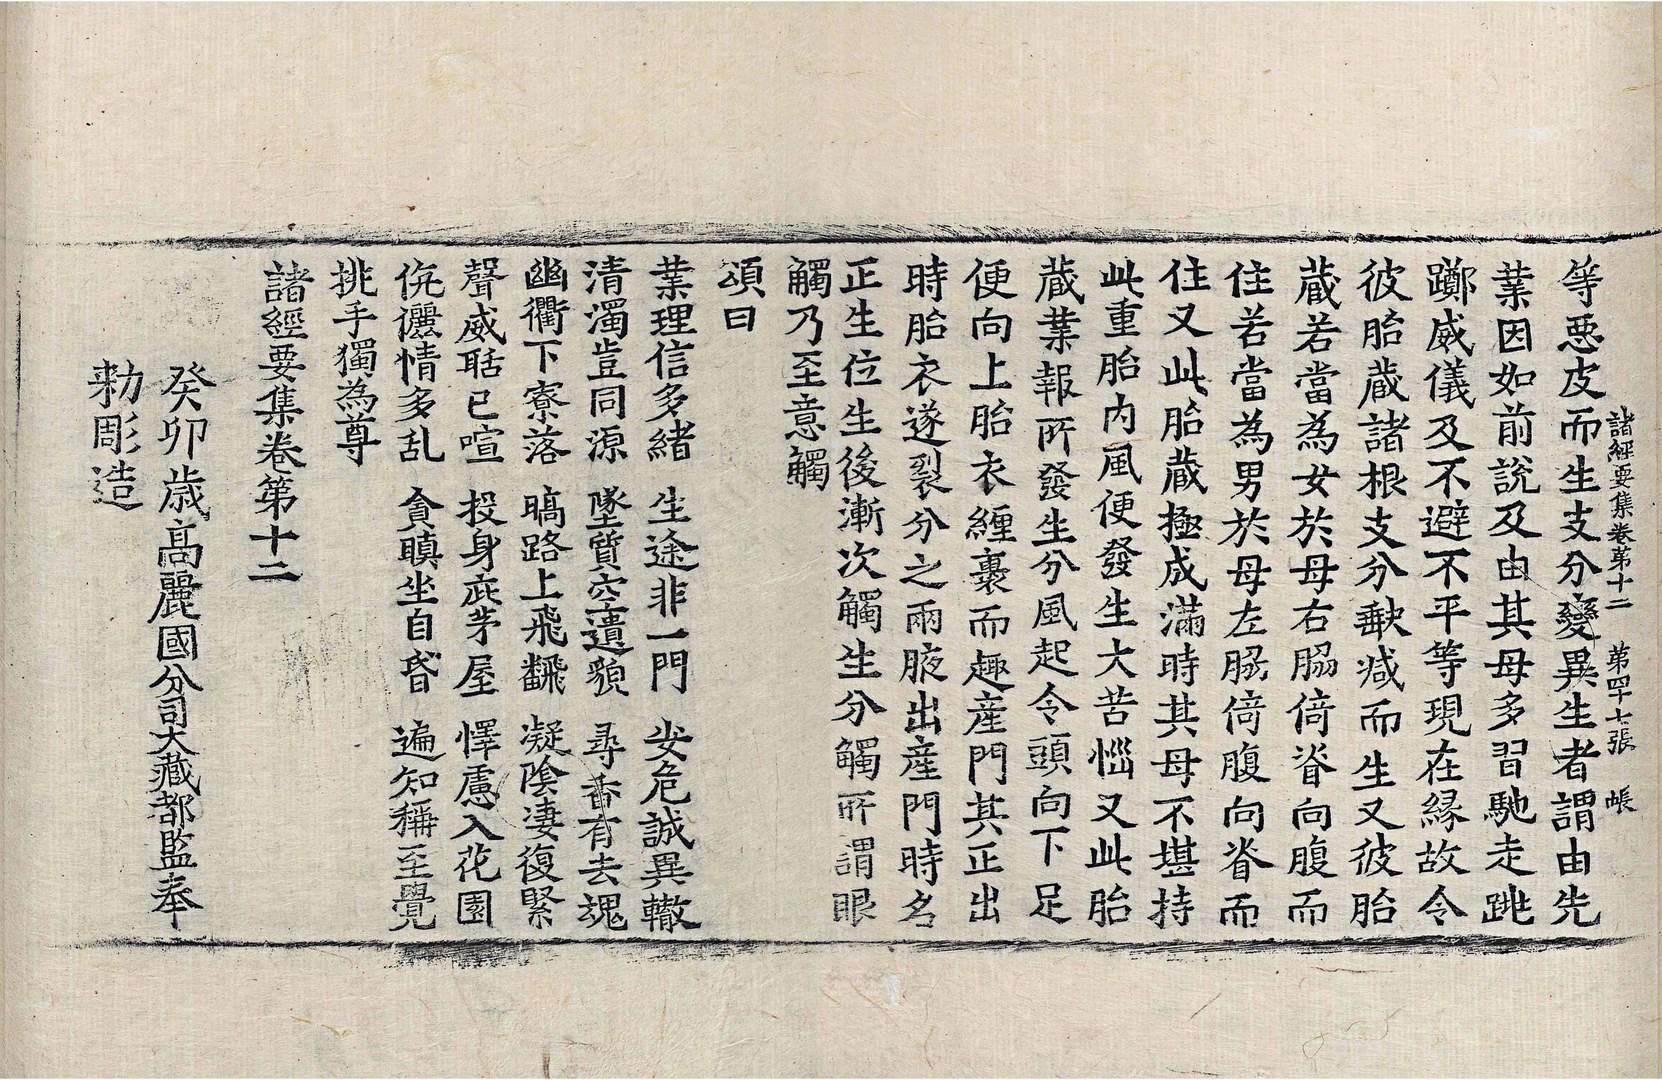 諸經要集卷第十二　第四十七張　帳
等惡皮而生支分變異生者謂由先
業因如前說及由其母多習馳走跳
躑威儀及不避不平等現在縁故令
彼胎藏諸根支分缺减而生又彼胎
藏若當為女於母右脇倚脊向腹而
住若當為男於母左脇倚腹向脊而
住又此胎藏極成滿時其母不堪持
此重胎内風便發生大苦惱又此胎
藏業報所發生分風起令頭向下足
便向上胎衣纏裹而趣産門其正出
時胎衣遂裂分之兩腋出産門時名
正生位生後漸次觸生分觸所謂眼
觸乃至意觸
頌曰
業理信多緒　生途非一門　安危誠異轍
清濁豈同源　墜質空遺貌　尋香有去魂
幽衢下寮落　暠路上飛飜　凝陰凄復緊
聲威聒已喧　投身庇茅屋　懌慮入花園
伉儷情多乱　貪瞋坐自昏　遍知稱至覺
挑手獨為尊
諸經要集卷第十二
癸卯歳高麗國分司大藏都監奉
勑彫造